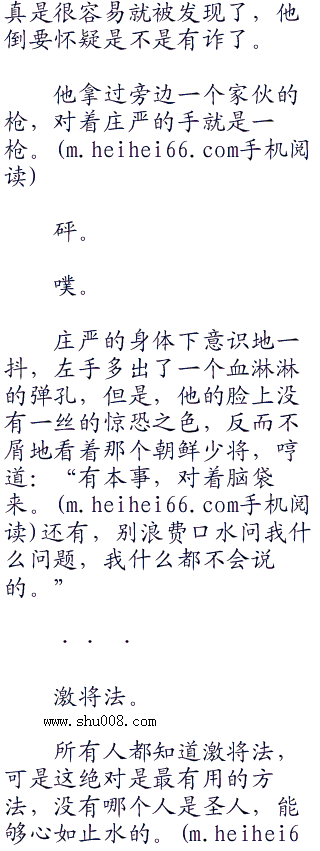 真是很容易就被发现了，他
倒要怀疑是不是有诈了。
他拿过旁边一个家伙的
枪，对着庄严的手就是一
枪。(m.heihei66.com手机阅
读)
砰。
噗。
庄严的身体下意识地一
抖，左手多出了一个血淋淋
的弹孔，但是，他的脸上没
有一丝的惊恐之色，反而不
屑地看着那个朝鲜少将，哼
道：“有本事，对着脑袋
来。(m.heihei66.com手机阅
读)还有，别浪费口水问我什
么问题，我什么都不会说
的。”
. . .
激将法。
www.shu008.com
所有人都知道激将法，
可是这绝对是最有用的方
法，没有哪个人是圣人，能
够心如止水的。(m.heihei6